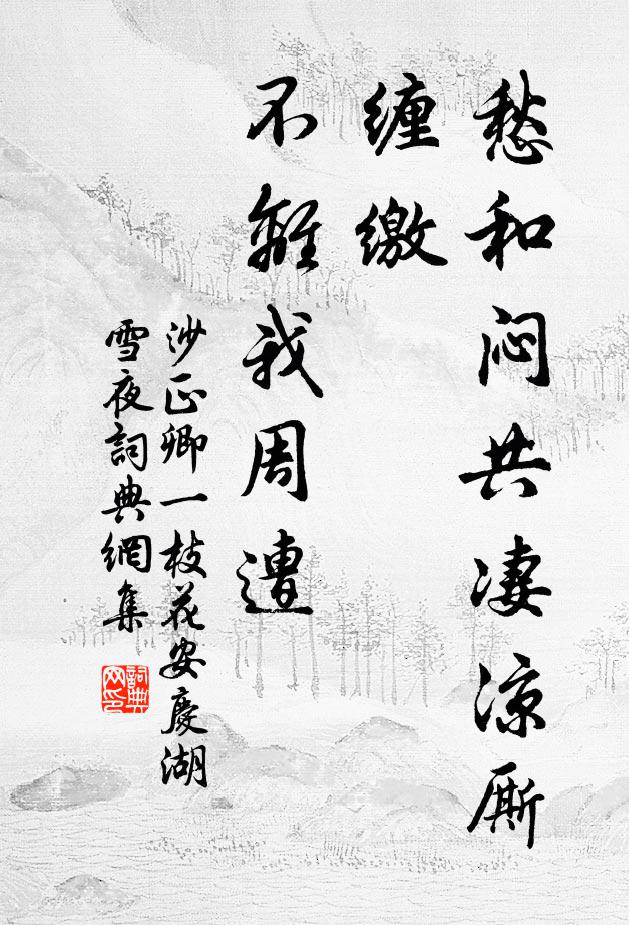 愁和闷共凄凉厮
缠缴
不離我周遭
沙正卿一枝花安慶湖
雪夜詞典網集
詞典网印